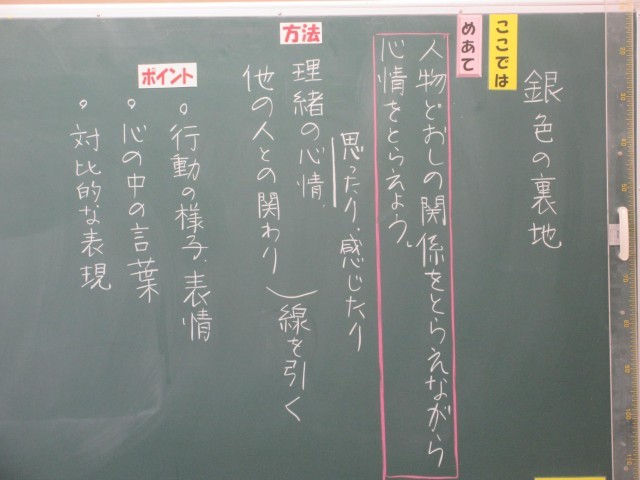 銀色の裏地
ここでは
めあて
人物どおしの関係をとらえながら
心情をとらえよう。
思ったり、感じたり
方法
理緒の心情、
他の人との関わり
線を引く
ポイント
。行動の様子、表情
。心の中の言葉
。対比的な表現